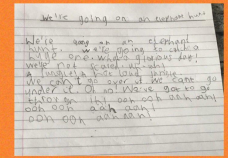 We're going on an elephant hunt
We're going on an elephant
hunt. We're going to catch a
huge one, what a glorious day!
we're not scared uh-oh!
A jungle! A huge loud jungle
We can't go over it we cant go
under it Oh no! We've got to go
through it! ooh ooh aah aah!
ooh ooh aah aah!
ooh ooh aah aah!